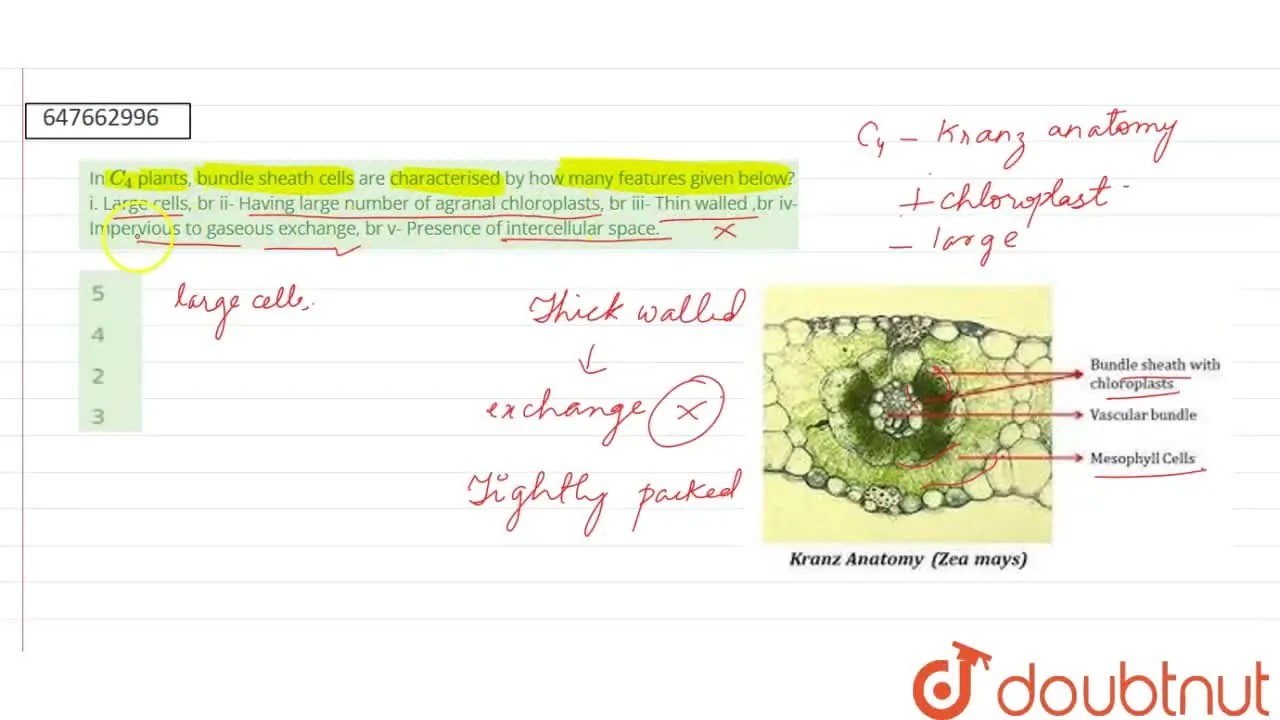 647662996
C4 – Kranz anatomy
In C4 plants, bundle sheath cells are characterised by how many features given below?
i. Large cells, br ii- Having large number of agranal chloroplasts, br iii- Thin walled ,br iv-
Impervious to gaseous exchange, br v- Presence of intercellular space.
+ chloroplast
– large
5
4
2
3
large cells.
Thick walled
↓
exchange ×
Tightly packed
Bundle sheath with
chloroplasts
Vascular bundle
Mesophyll Cells
Kranz Anatomy (Zea mays)
doubtnut